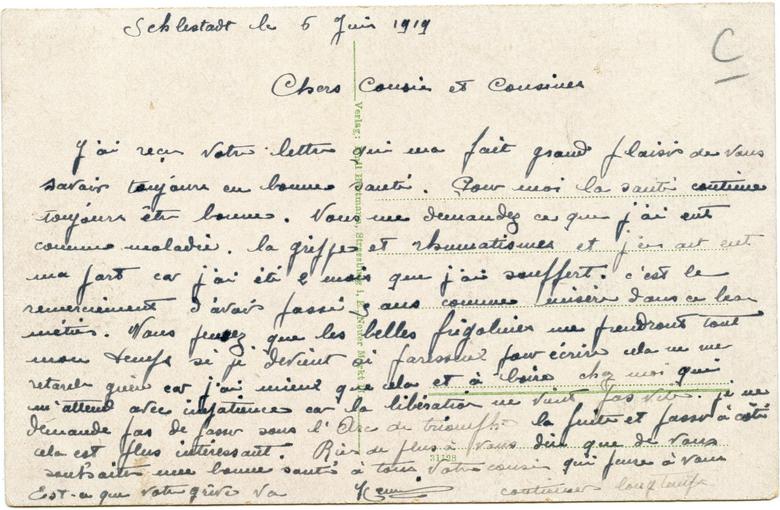 Schlestadt le 6 Juin 1919
C
Chers Cousin et Cousines
J'ai reçu votre lettre qui ma fait grand plaisir de vous
savoir toujours en bonne santé. Pour moi la santé continue
toujours être bonne. Vous me demandez ce que j'ai eut
comme maladie. la grippe et rhumatismes et j'en ait eut
ma part car j'ai été 2 mois que j'ai souffert. c'est le
remerciement d'avoir passé 5 ans comme misère dans ce beau
métier. Vous pensez que les belles frigolines me prendront tout
mon temps si je devient si paresseux pour écrire cela ne me
retarde guère car j'ai mieux que cela et à boire chez moi qui
m'attend avec impatience car la libération ne vient pas vite. je ne
demande pas de passer sous l'Arc de triomphe la fuite et passer à côté
cela est plus intéressant. Rien de plus à vous dire que de vous
souhaiter une bonne santé à tous Votre cousin qui pense à vous
Est-ce que votre grève va continuer longtemps
Verlag: Hartmann, Strassburg i. E., Neuer Markt
31198